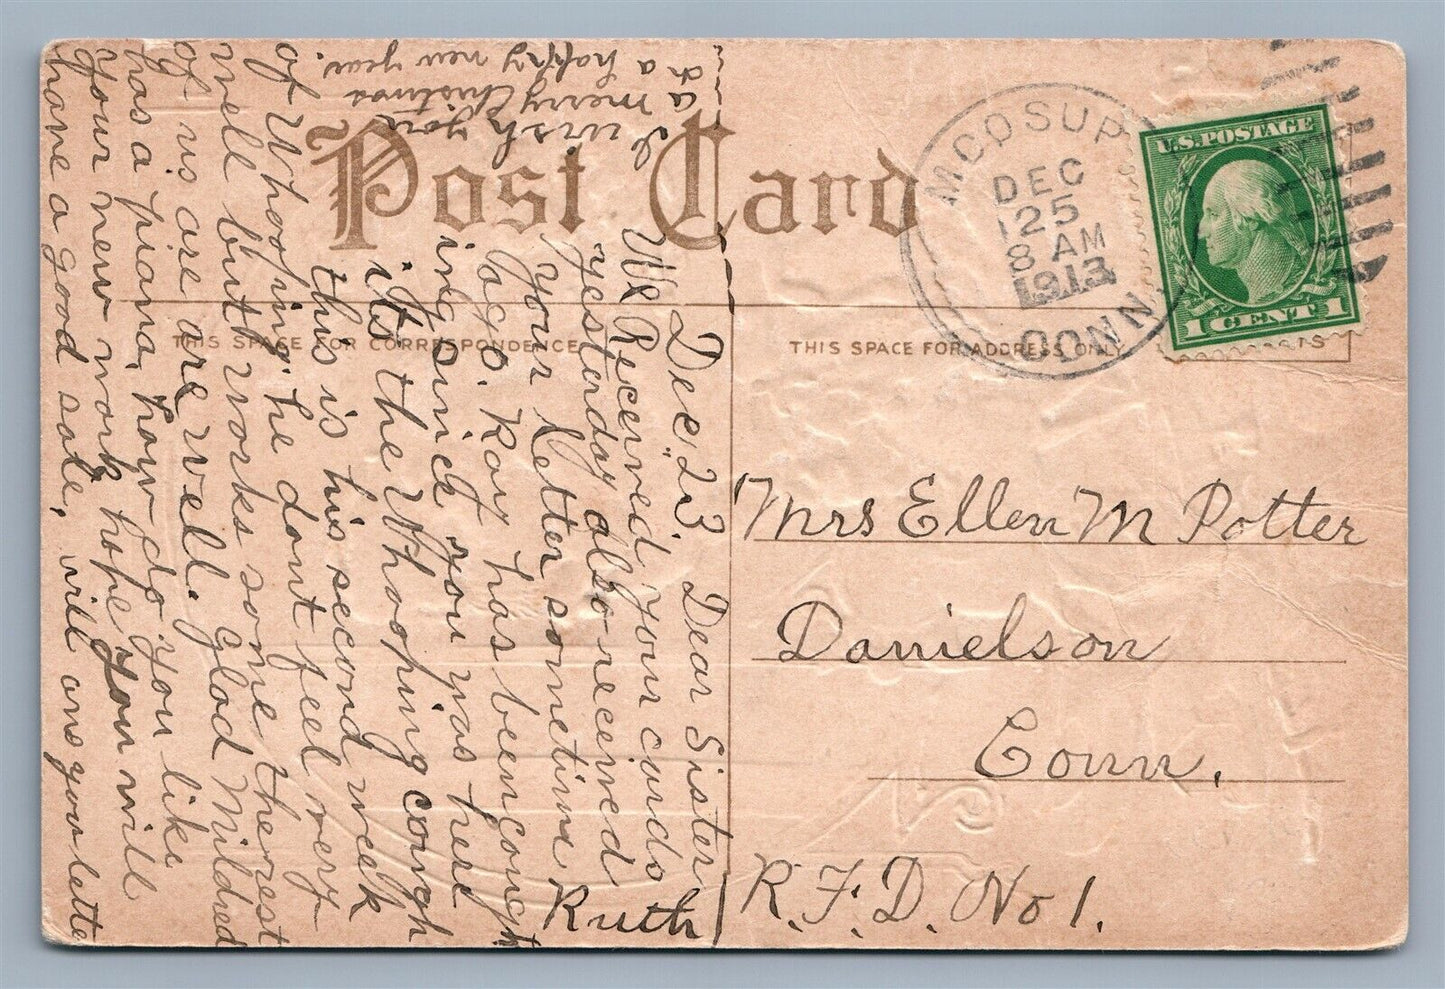 Post Card
THIS SPACE FOR CORRESPONDENCE
THIS SPACE FOR ADDRESS ONLY
MOOSUP
DEC
25
8 AM
1913
CONN
U.S. POSTAGE
1 CENT 1
Mrs Ellen M Potter
Danielson
Conn.
R.F.D. No 1.
Dec. 23. Dear Sister
We Received your cards
yesterday also received
your Letter sometime
ago. Ray has been cough
ing since you was here
its the Whooping cough
this is his second week
of Whooping he dont feel very
well but works some the rest
of us are well. Glad Mildred
has a piano, how do you like
your new work hope you will
have a good sale, will ans you lette
Ruth
I wish you
a merry Christmas
& a happy new year.